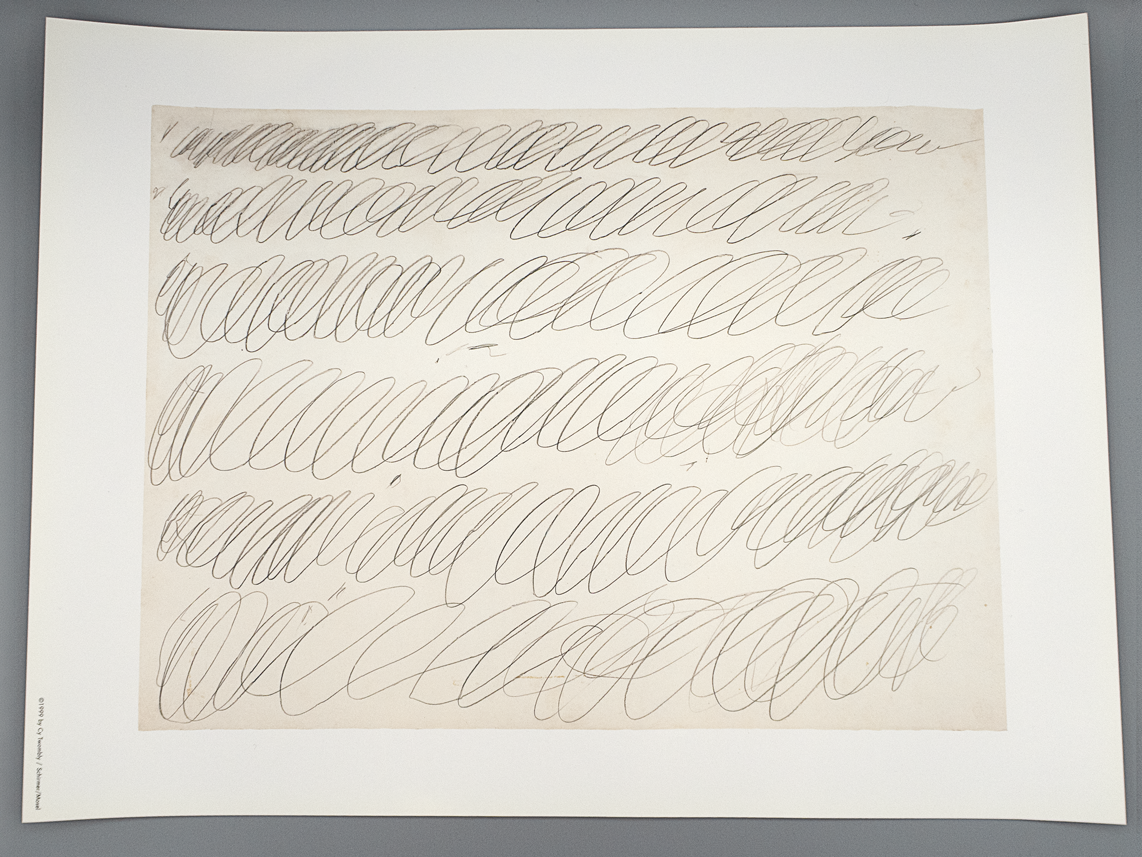 ©1999 by Cy Twombly / Schirmer/Mosel